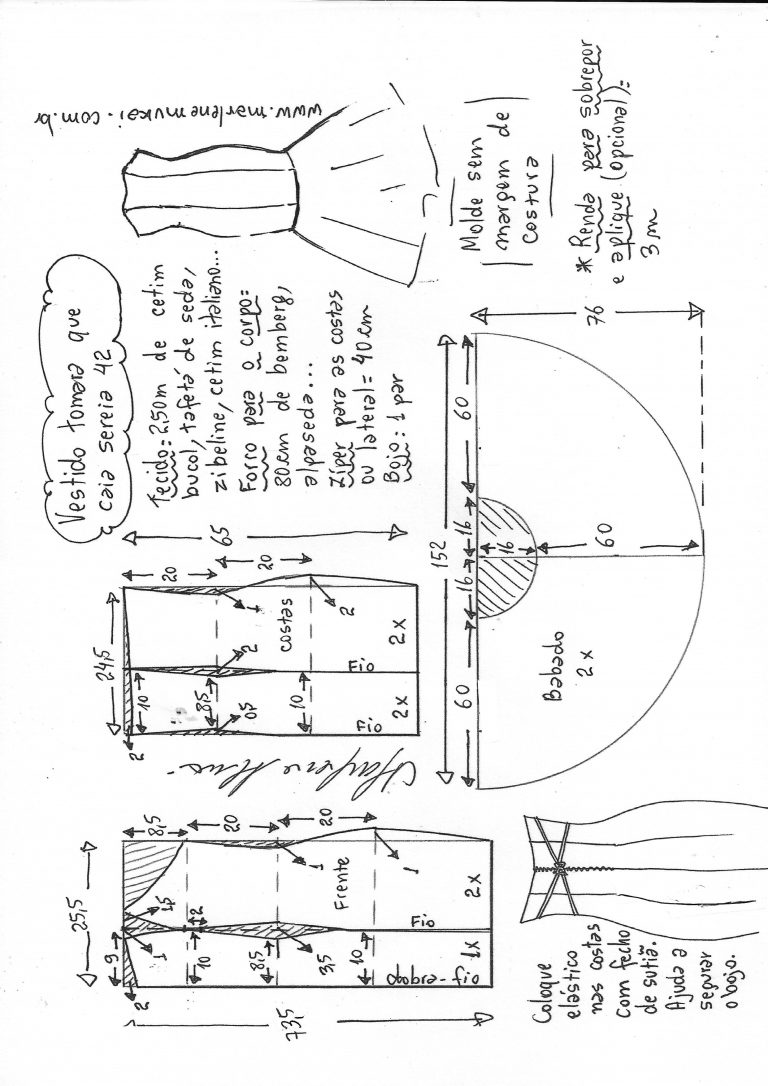 Vestido tomara que
caia sereia 42
www.marlenemukai.com.br
Tecido: 2,50m de cetim
bucol, tafetá de seda,
zibeline, cetim italiano...
Forro para o corpo:
80cm de bemberg,
alpaseda...
Zíper para as costas
ou lateral = 40cm
Bojo: 1 par
Molde sem
margem de
costura
* Renda para sobrepor
e aplique (opcional):
3m
25,5
9
2
1
1,5
8,5
2
10
20
8,5
3,5
1
20
10
1
Frente
Fio
1x
2x
dobra-fio
73,5
24,5
2
10
20
8,5
0,5
2
1
20
10
2
costas
Fio
Fio
2x
2x
65
152
60
16
16
60
16
60
76
Babado
2x
Coloque
elástico
nas costas
com fecho
de sutiã.
Ajuda a
segurar
o bojo.